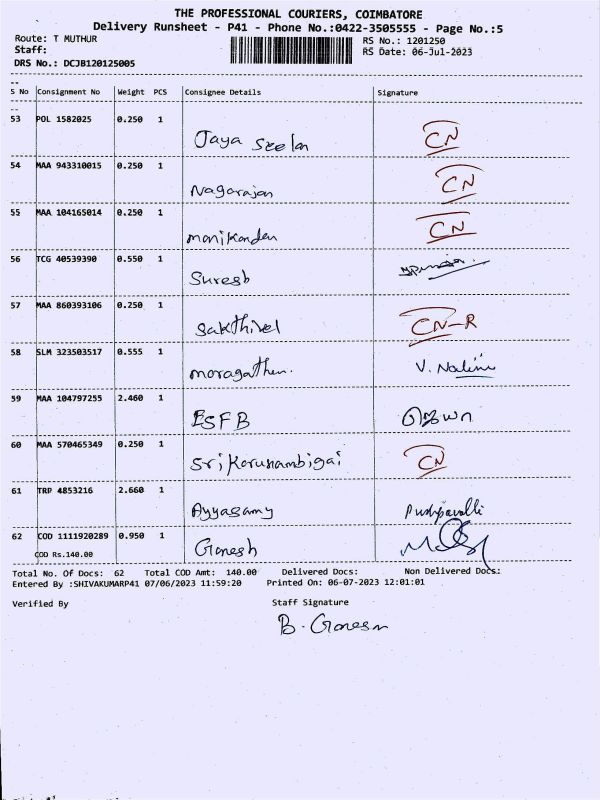 THE PROFESSIONAL COURIERS, COIMBATORE
Delivery Runsheet - P41 - Phone No.:0422-3505555 - Page No.:5
Route: T MUTHUR RS No.: 1201250
Staff: RS Date: 06-Jul-2023
DRS No.: DCJB120125005
S No Consignment No Weight PCS Consignee Details Signature
53 POL 1582025 0.250 1 Jaya Seelan CN
54 MAA 943310015 0.250 1 Nagarajan CN
55 MAA 104165014 0.250 1 manikanden CN
56 TCG 40539390 0.550 1 Suresh
57 MAA 860393106 0.250 1 Sakthivel CN-R
58 SLM 323503517 0.555 1 moragathen. V. Nalini
59 MAA 104797255 2.460 1 ESFB
60 MAA 570465349 0.250 1 Sri Karunambigai CN
61 TRP 4853216 2.660 1 Ayyasamy Pushpavalli
62 COD 1111920289 0.950 1 Ganesh
COD Rs.140.00
Total No. Of Docs: 62 Total COD Amt: 140.00 Delivered Docs: Non Delivered Docs:
Entered By :SHIVAKUMARP41 07/06/2023 11:59:20 Printed On: 06-07-2023 12:01:01
Verified By Staff Signature
B. Ganesh